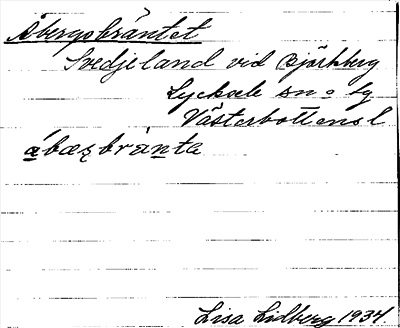 Åbergsbräntet
Svedjeland vid Björkberg
Lycksele sn o lg
Västerbottens l
åbæsbrànta
Lisa Lidberg 1934.